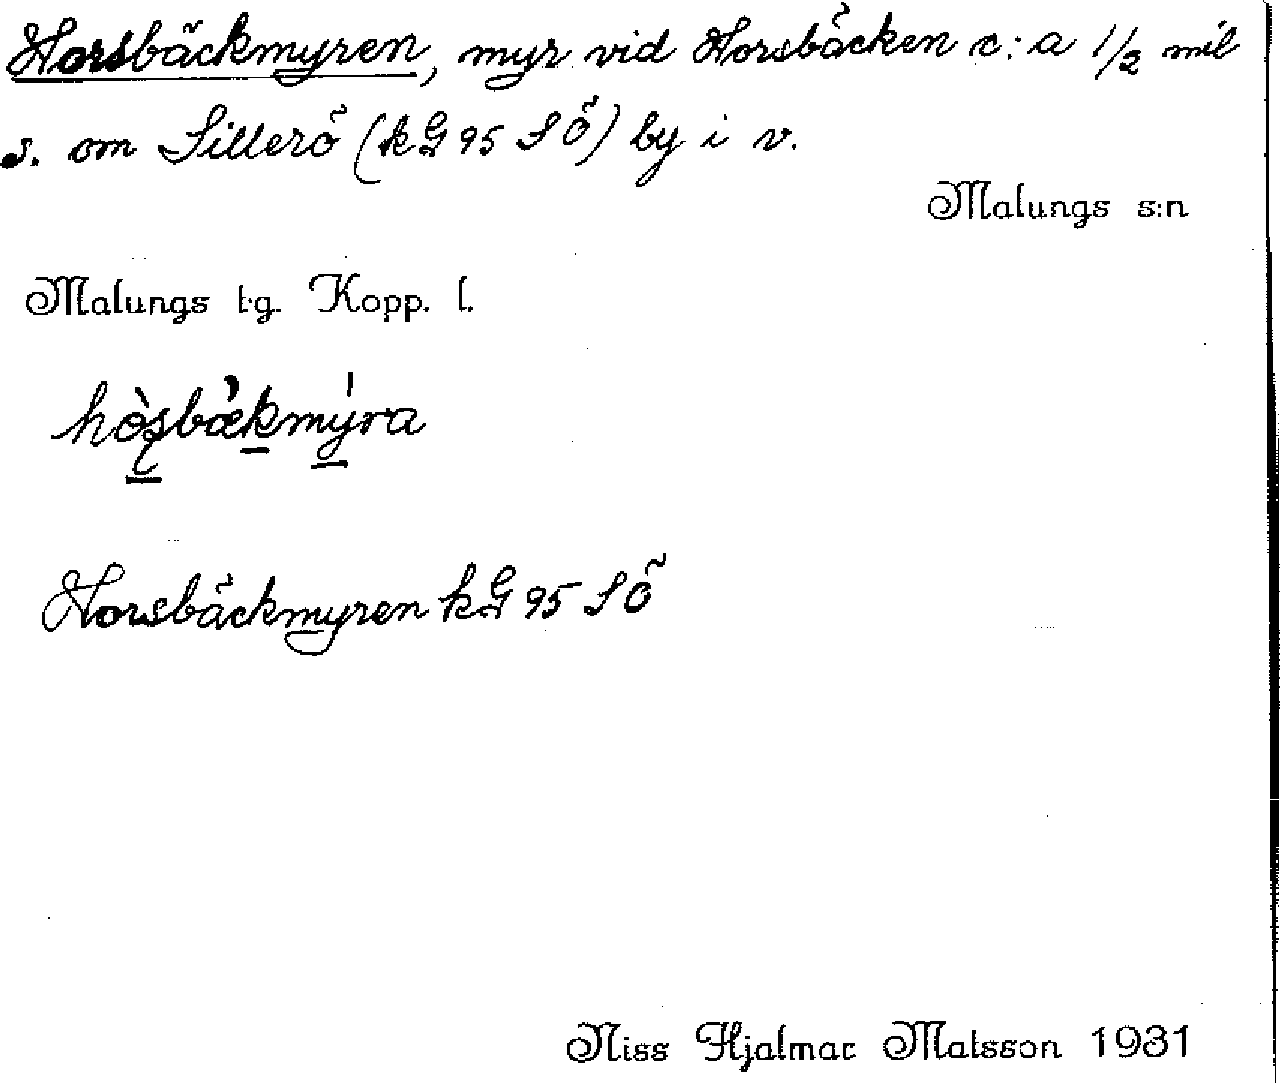 Horsbäckmyren, myr vid Horsbäcken c:a 1/2 mil
s. om Sillerö (kG 95 SÖ) by i v.
Malungs s:n
Malungs t:g. Kopp. l.
hò̱ʂbæ̀ḵmý̱ra
Horsbäckmyren kG 95 SÖ
Niss Hjalmar Matsson 1931